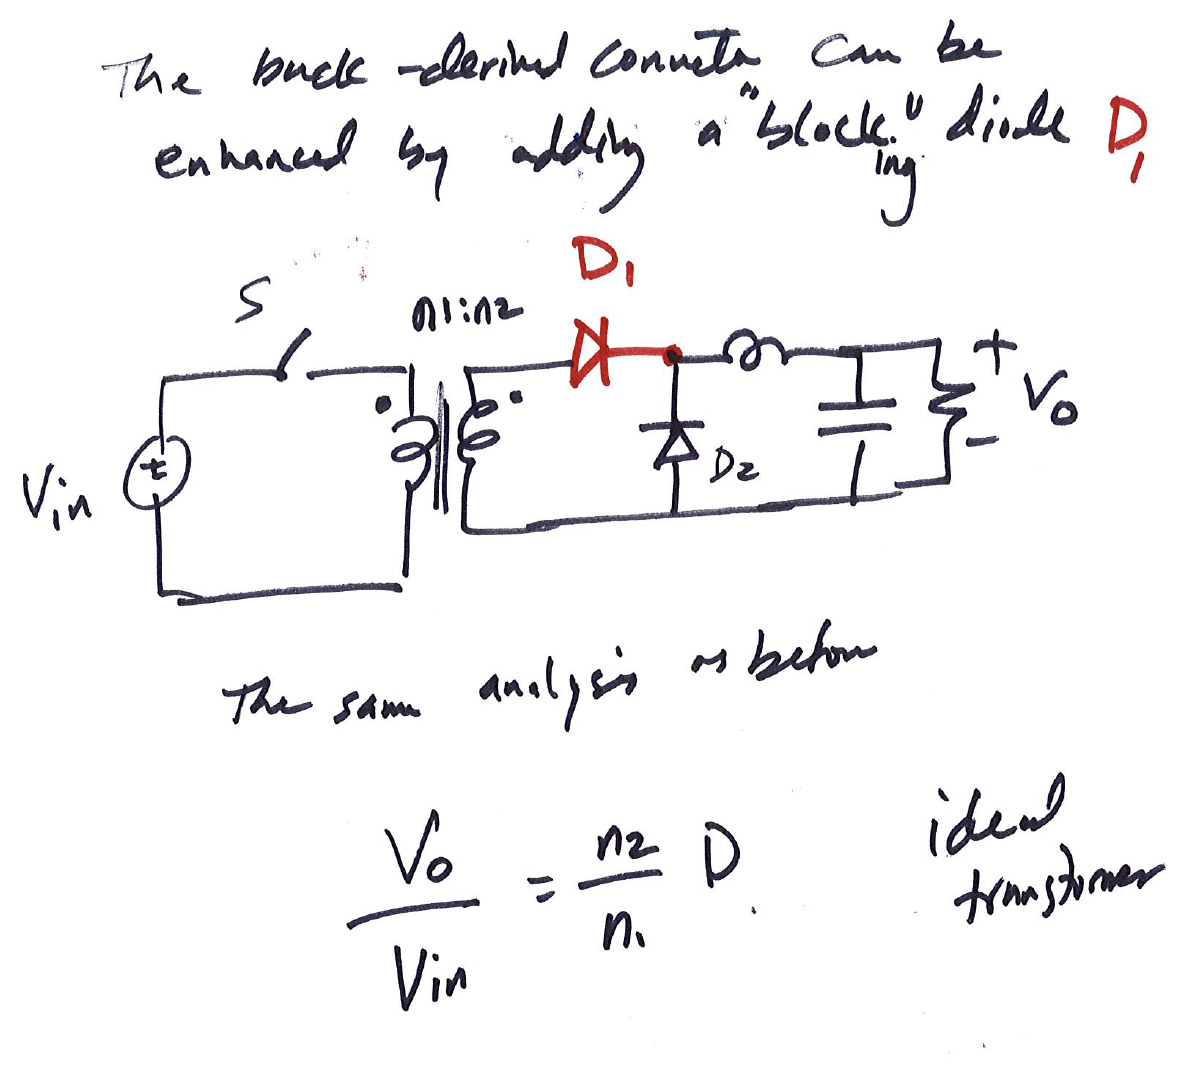 The buck-derived converter can be
enhanced by adding a "blocking" diode D1
D1
S
n1:n2
+
Vo
-
D2
+
Vin
The same analysis as before
Vo / Vin = n2 / n1 D
ideal
transformer